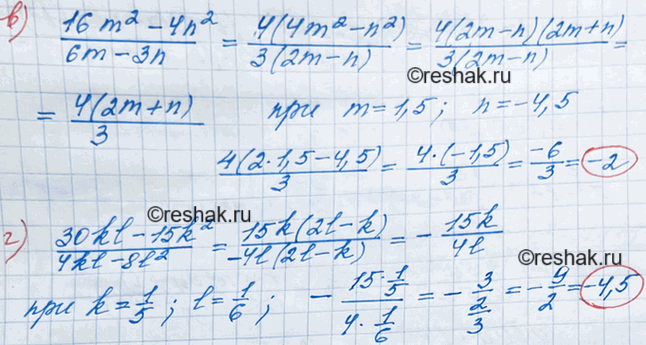 в) (16m² - 4n²)/(6m - 3n) = 4(4m² - n²)/3(2m - n) = 4(2m - n)(2m + n)/3(2m - n) =
= 4(2m + n)/3 при m = 1,5; n = -4,5
4(2·1,5 - 4,5)/3 = 4·(-1,5)/3 = -6/3 = -2
г) (30kl - 15k²)/(4kl - 8l²) = 15k(2l - k)/-4l(2l - k) = - 15k/4l
при k = 1/5; l = 1/6; - (15·1/5)/(4·1/6) = - 3/(2/3) = - 9/2 = -4,5
©reshak.ru
©reshak.ru
©reshak.ru
©reshak.ru